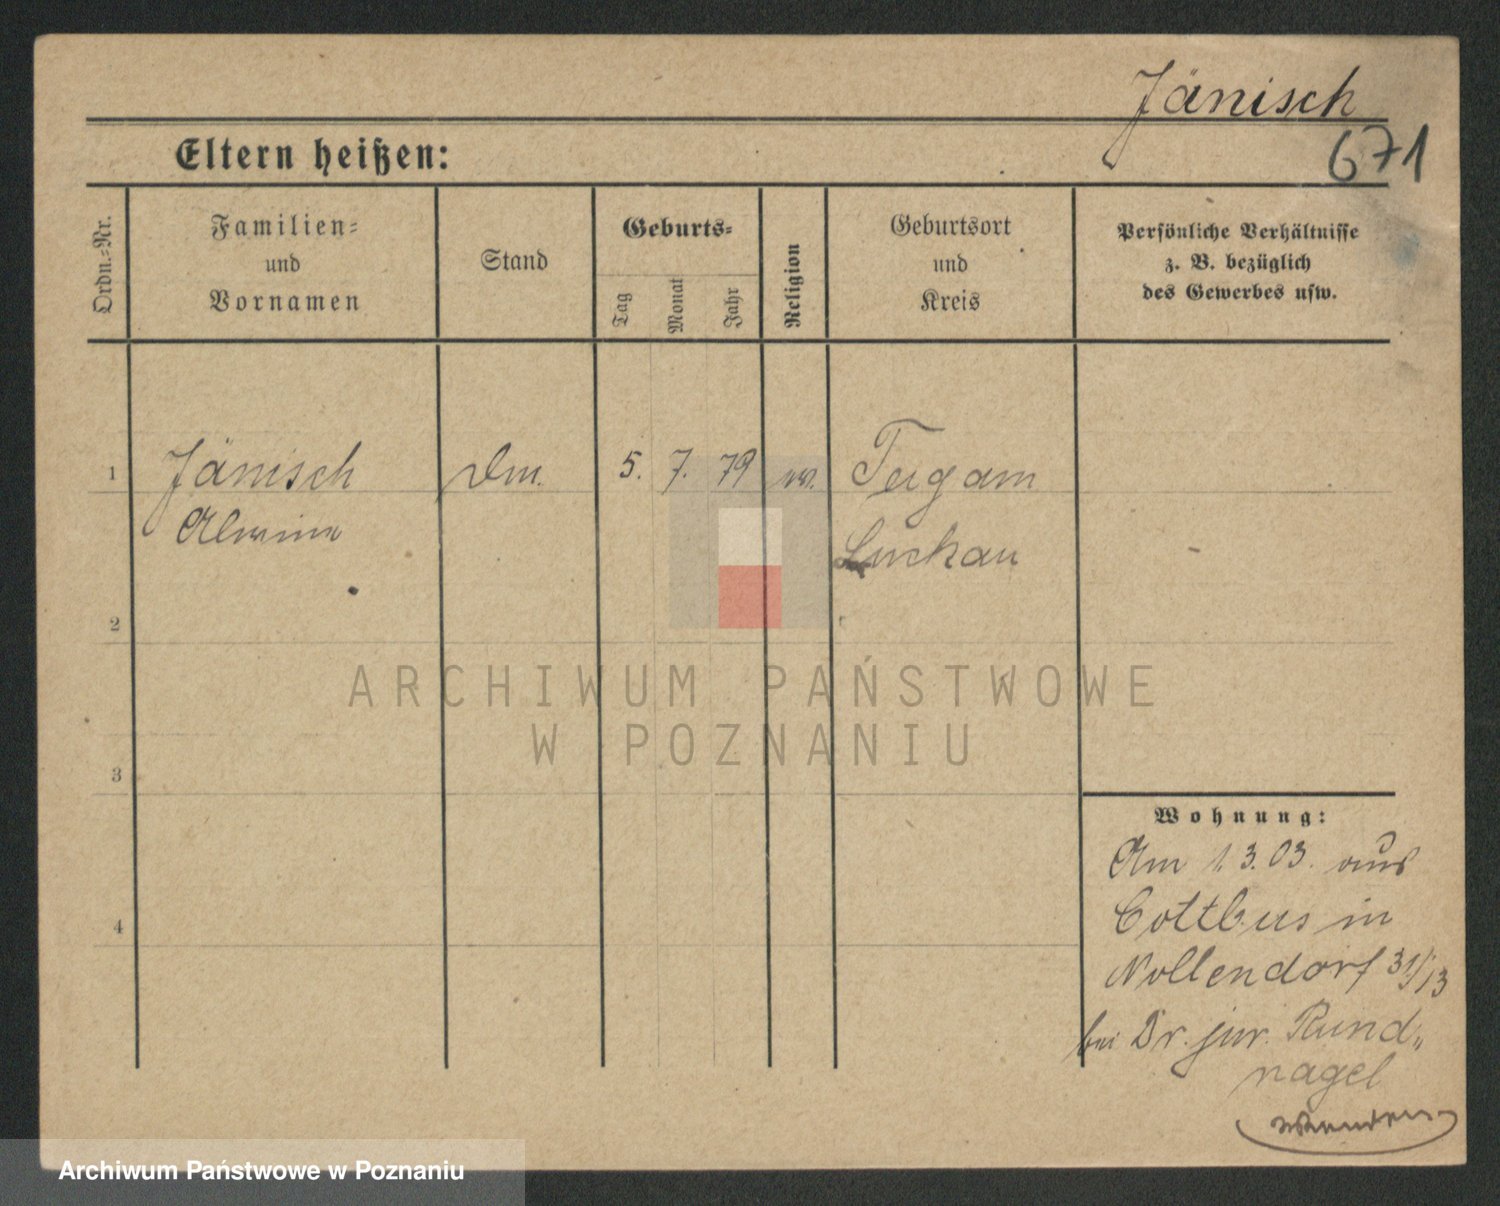 Jänisch
671
Eltern heißen:
Ordn.-Nr.
Familien-
und
Vornamen
Stand
Geburts-
Tag
Monat
Jahr
Religion
Geburtsort
und
Kreis
Persönliche Verhältnisse
z. B. bezüglich
des Gewerbes usw.
1
Jänisch
5. 7. 79
ev.
Tugam
Alwine
Luckau
2
ARCHIWUM PAŃSTWOWE
W POZNANIU
3
4
Wohnung:
Am 1.3.03. aus
Cottbus in
Nollendorf 31/13
bei Dr. jur. Rund„
nagel
Archiwum Państwowe w Poznaniu